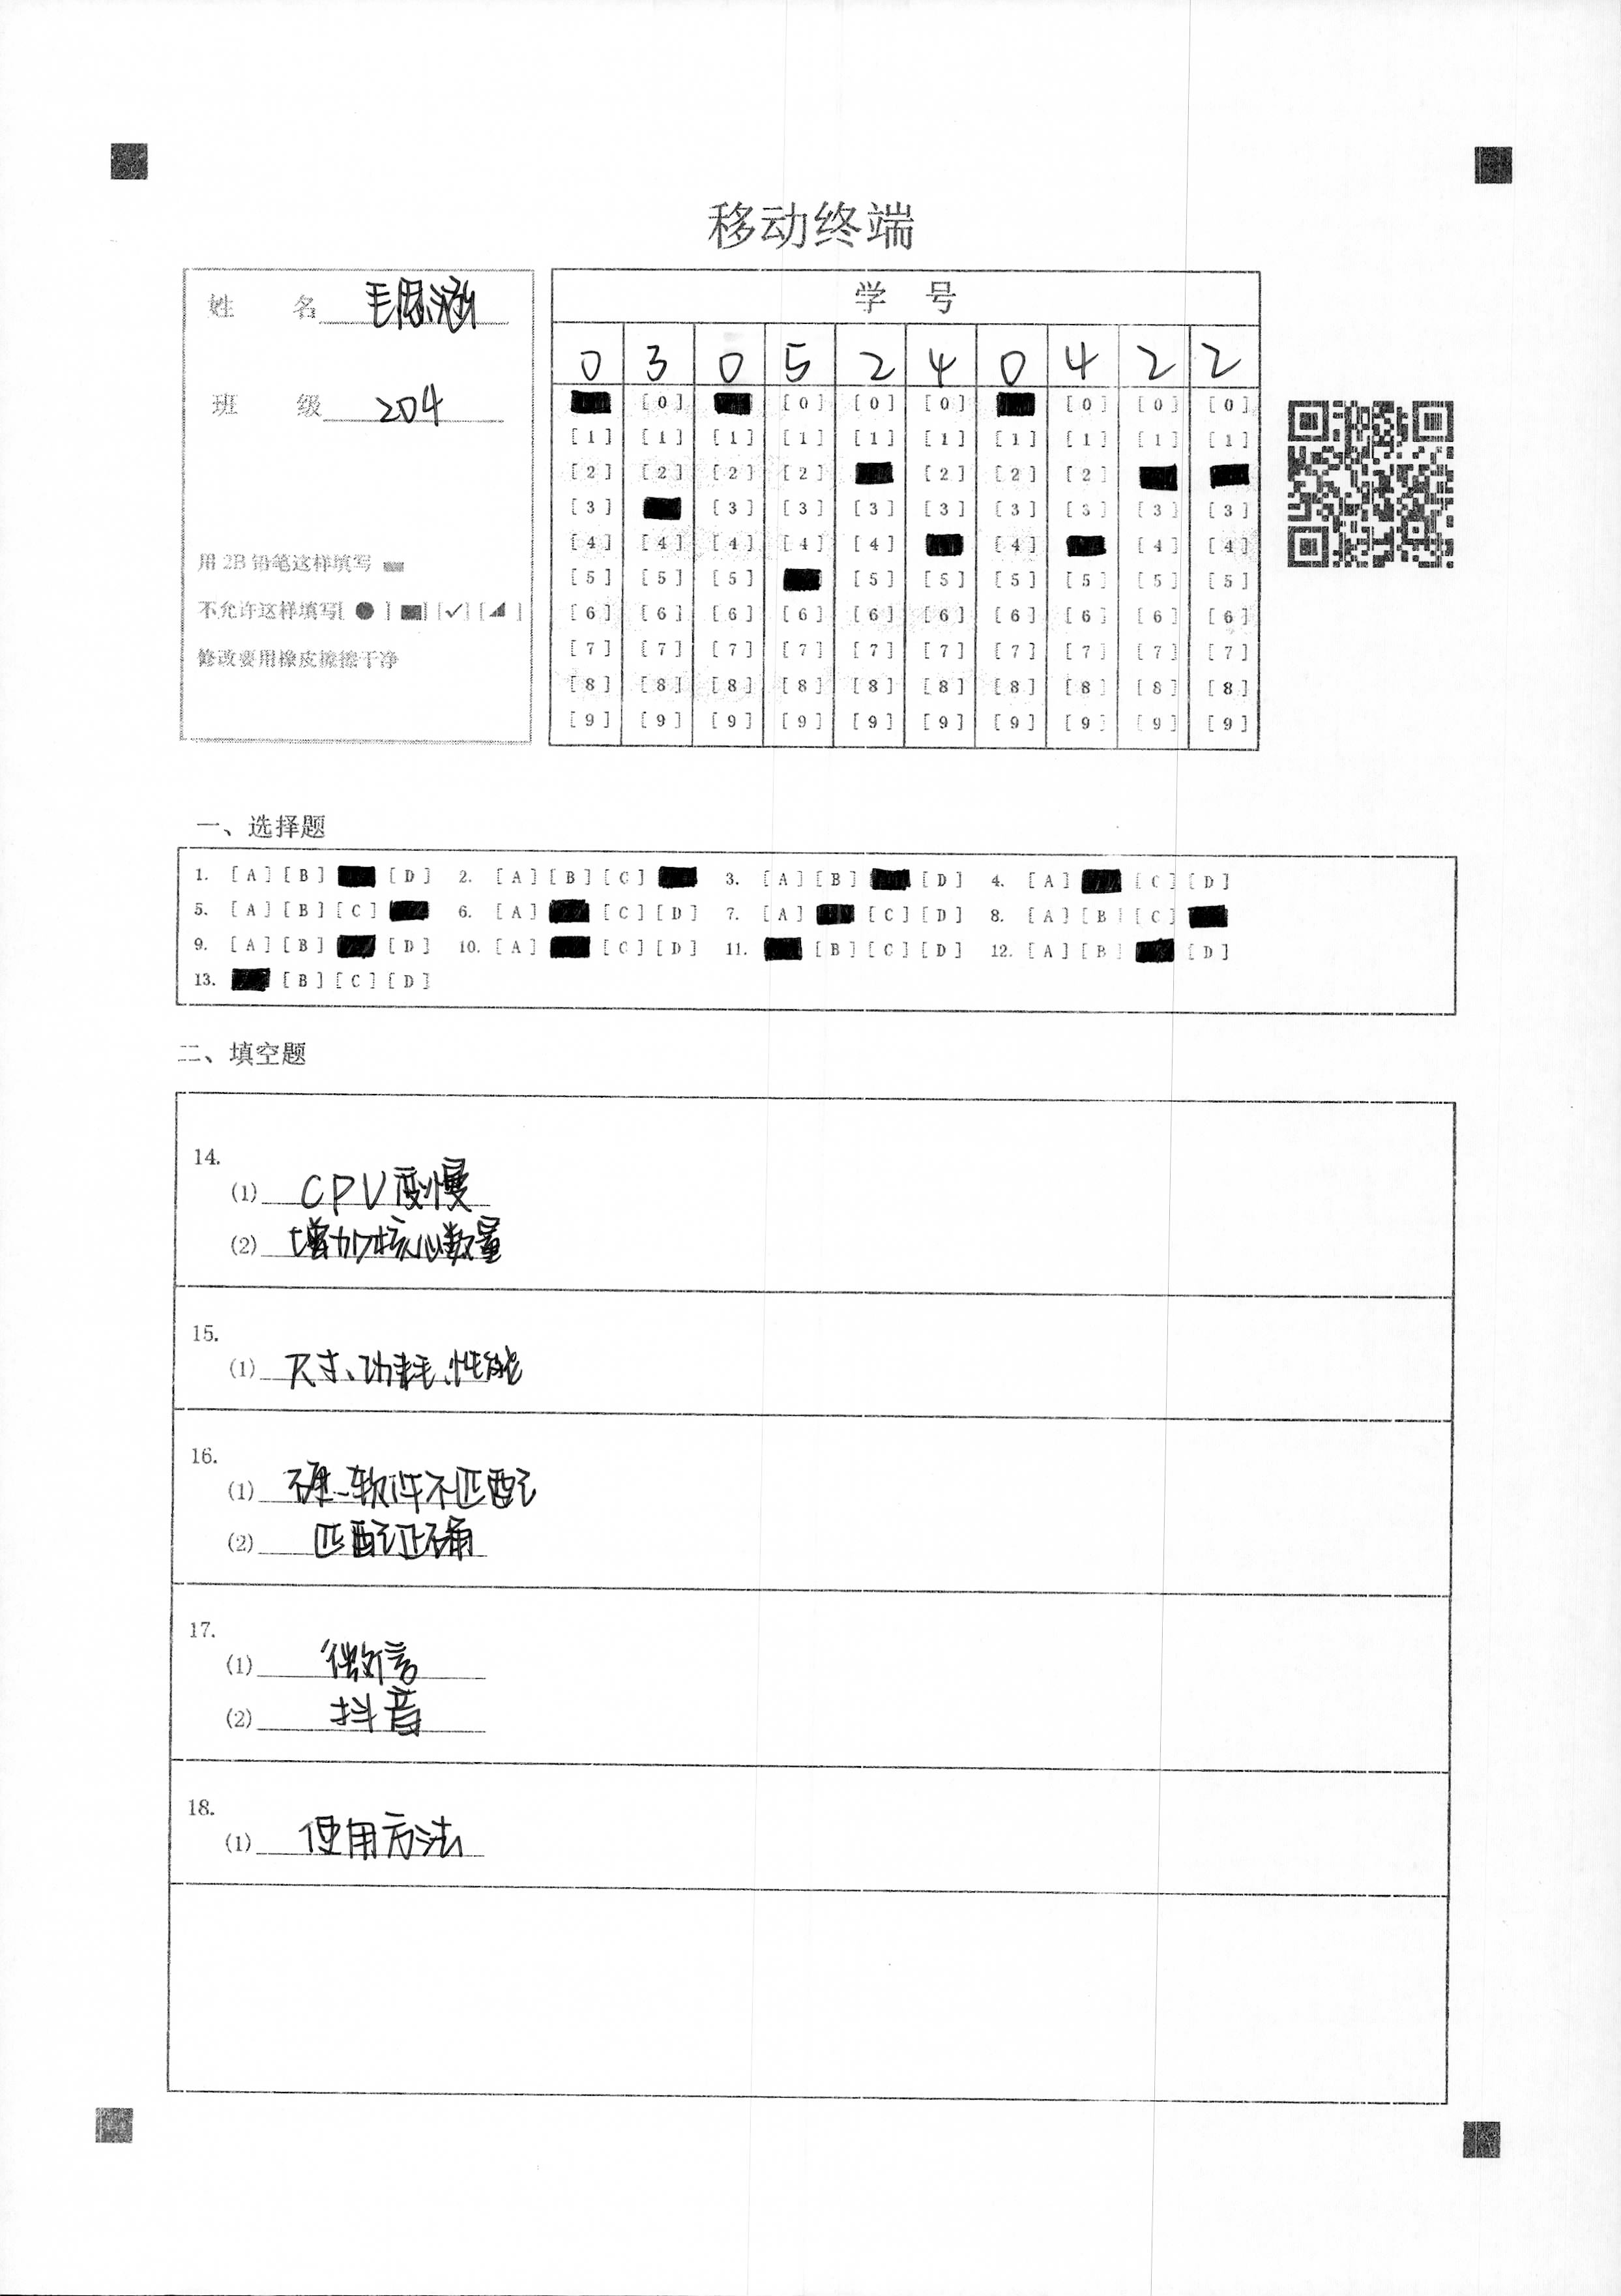 移动终端
姓 名 毛思涵
班 级 204
用2B铅笔这样填写
不允许这样填写[ ● ] [■] [✓] [◢ ]
修改要用橡皮擦擦干净
学 号
0 3 0 5 2 4 0 4 2 2
[0] [0] [0] [0] [0] [0] [0]
[1] [1] [1] [1] [1] [1] [1] [1] [1] [1]
[2] [2] [2] [2] [2] [2] [2]
[3] [3] [3] [3] [3] [3] [3] [3] [3]
[4] [4] [4] [4] [4] [4] [4] [4]
[5] [5] [5] [5] [5] [5] [5] [5] [5]
[6] [6] [6] [6] [6] [6] [6] [6] [6] [6]
[7] [7] [7] [7] [7] [7] [7] [7] [7] [7]
[8] [8] [8] [8] [8] [8] [8] [8] [8] [8]
[9] [9] [9] [9] [9] [9] [9] [9] [9] [9]
一、选择题
1. [A] [B] [D] 2. [A] [B] [C] 3. [A] [B] [D] 4. [A] [C] [D]
5. [A] [B] [C] 6. [A] [C] [D] 7. [A] [C] [D] 8. [A] [B] [C]
9. [A] [B] [D] 10. [A] [C] [D] 11. [B] [C] [D] 12. [A] [B] [D]
13. [B] [C] [D]
二、填空题
14.
(1) CPU变慢
(2) 增加核心数量
15.
(1) 尺寸、功耗、性能
16.
(1) 硬、软件不匹配
(2) 匹配正确
17.
(1) 微信
(2) 抖音
18.
(1) 使用方法